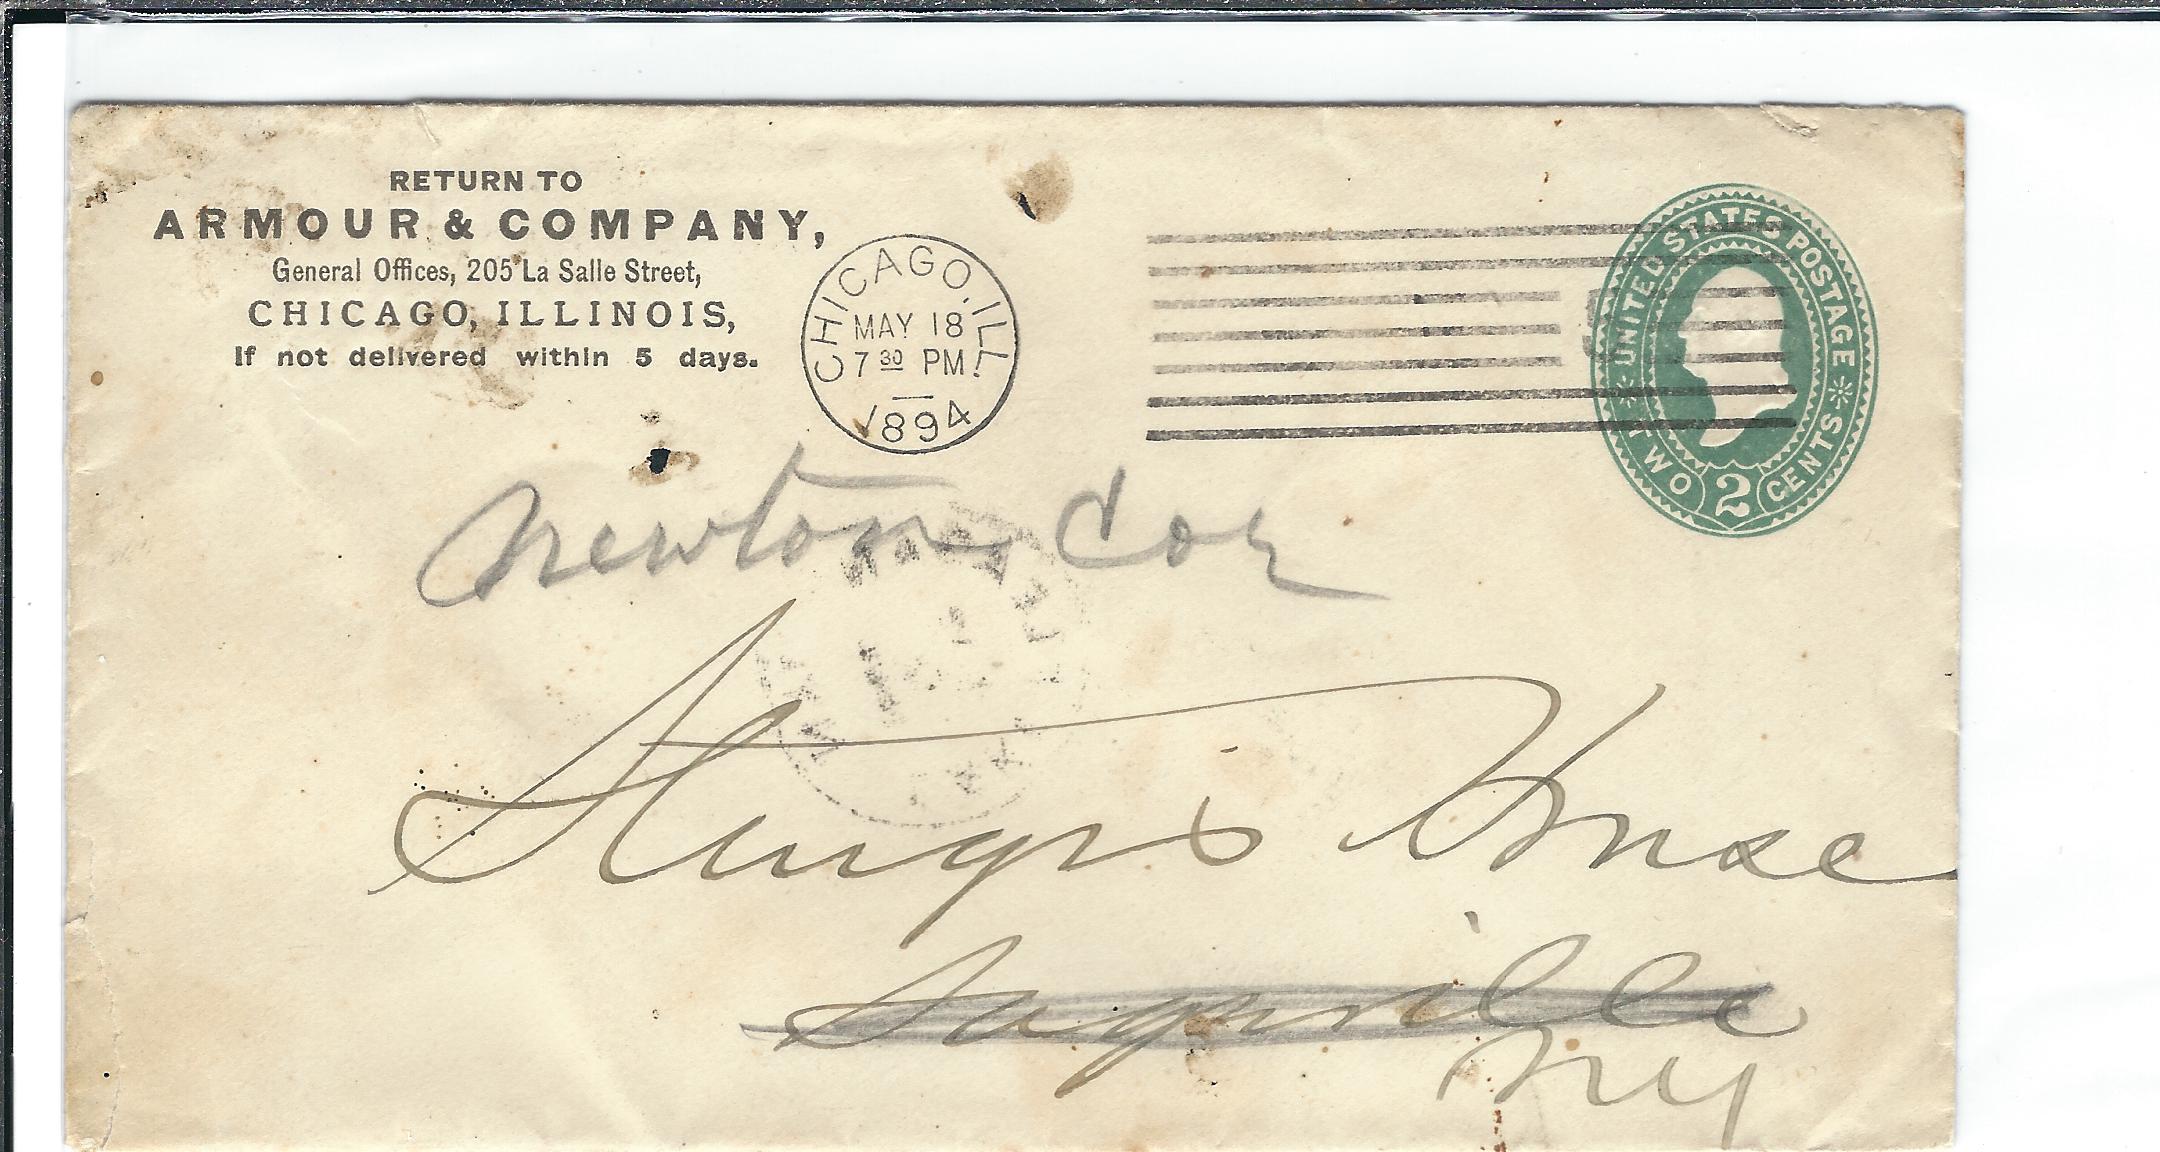 RETURN TO
ARMOUR & COMPANY,
General Offices, 205 La Salle Street,
CHICAGO, ILLINOIS,
If not delivered within 5 days.
CHICAGO. ILL.
MAY 18
7 30 PM
1894
UNITED STATES POSTAGE
TWO 2 CENTS
Newton Cor
Sturgis House
NY